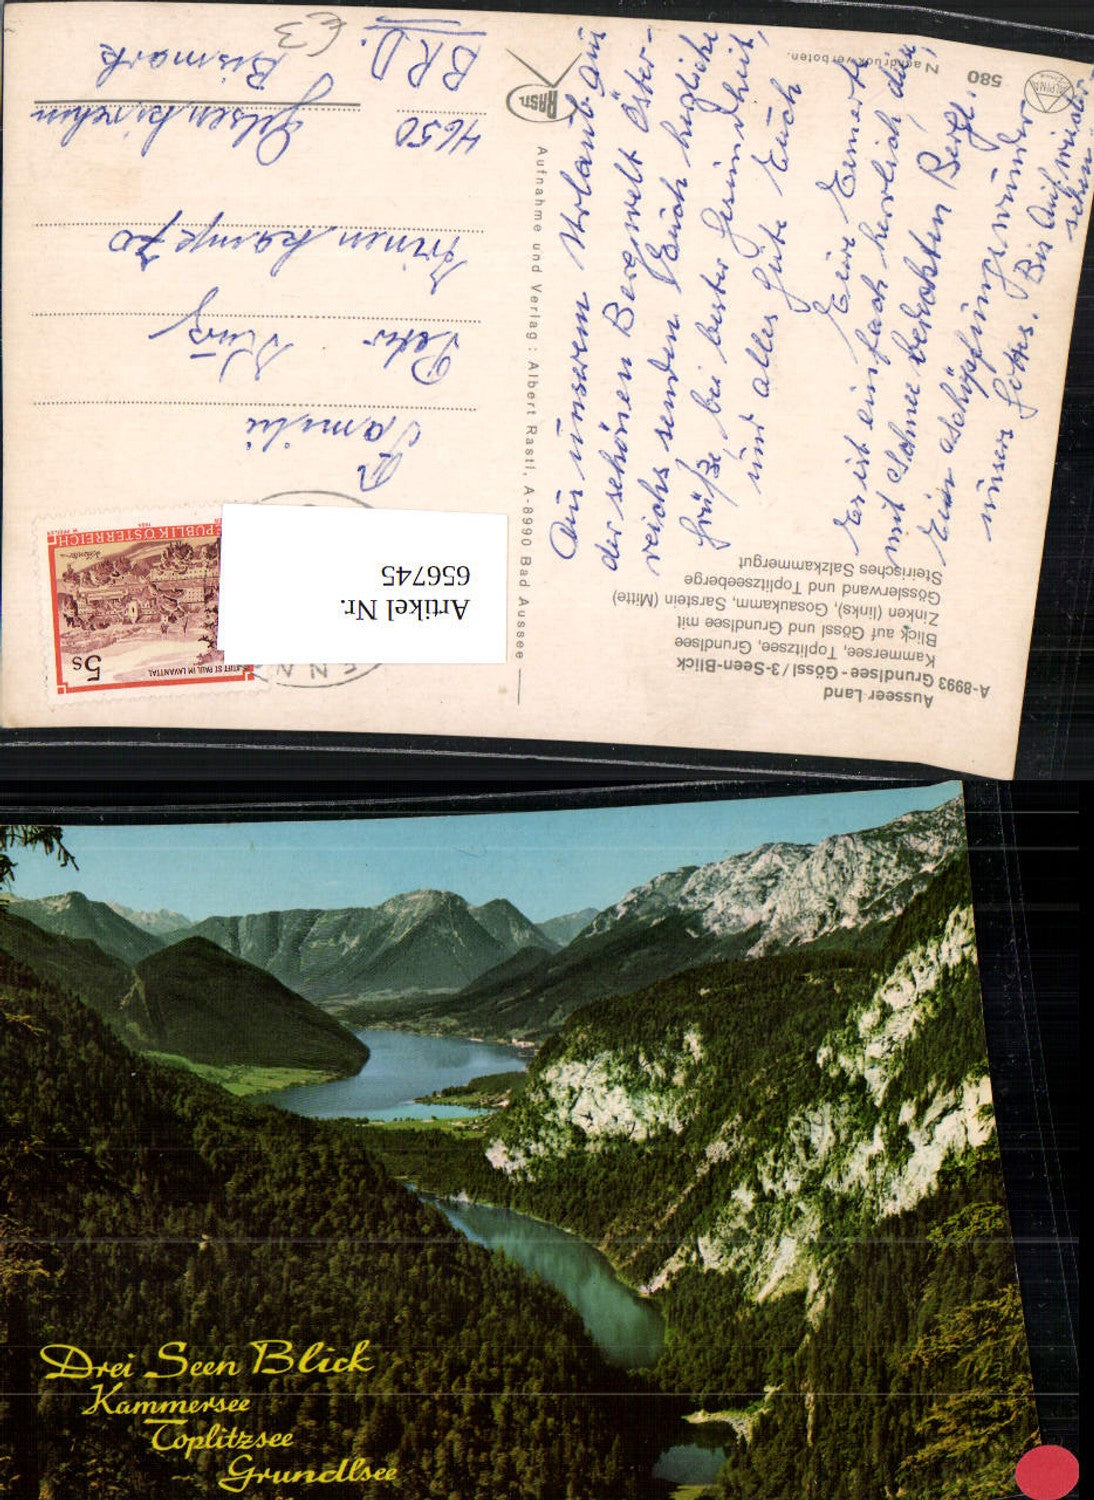 Ausseer Land
A-8993 Grundlsee - Gössl / 3-Seen-Blick
Kammersee, Toplitzsee, Grundlsee
Blick auf Gössl und Grundlsee mit
Zinken (links), Gosaukamm, Sarstein (Mitte)
Gösslerwand und Toplitzseeberge
Steirisches Salzkammergut
Aus unserem Urlaub aus
der schönen Bergwelt Öster-
reichs senden Euch herzliche
Grüße bei bester Gesundheit,
und alles Gute Euch
Eure
Es ist einfach herrlich, die
mit Schnee bedeckten Berge.
Eine Schöpfung
unsers Gottes. Bis Auf wieder
sehen
Aufnahme und Verlag : Albert Rastl, A-8990 Bad Aussee
RASTL
580
Nachdruck verboten.
REPUBLIK ÖSTERREICH
5 S
STIFT ST. PAUL IM LAVANTTAL
Artikel Nr.
656745
Familie
Peter
70
4650 Gelsenkirchen
BRD. Bismark
€3
Drei Seen Blick
Kammersee
Toplitzsee
Grundlsee